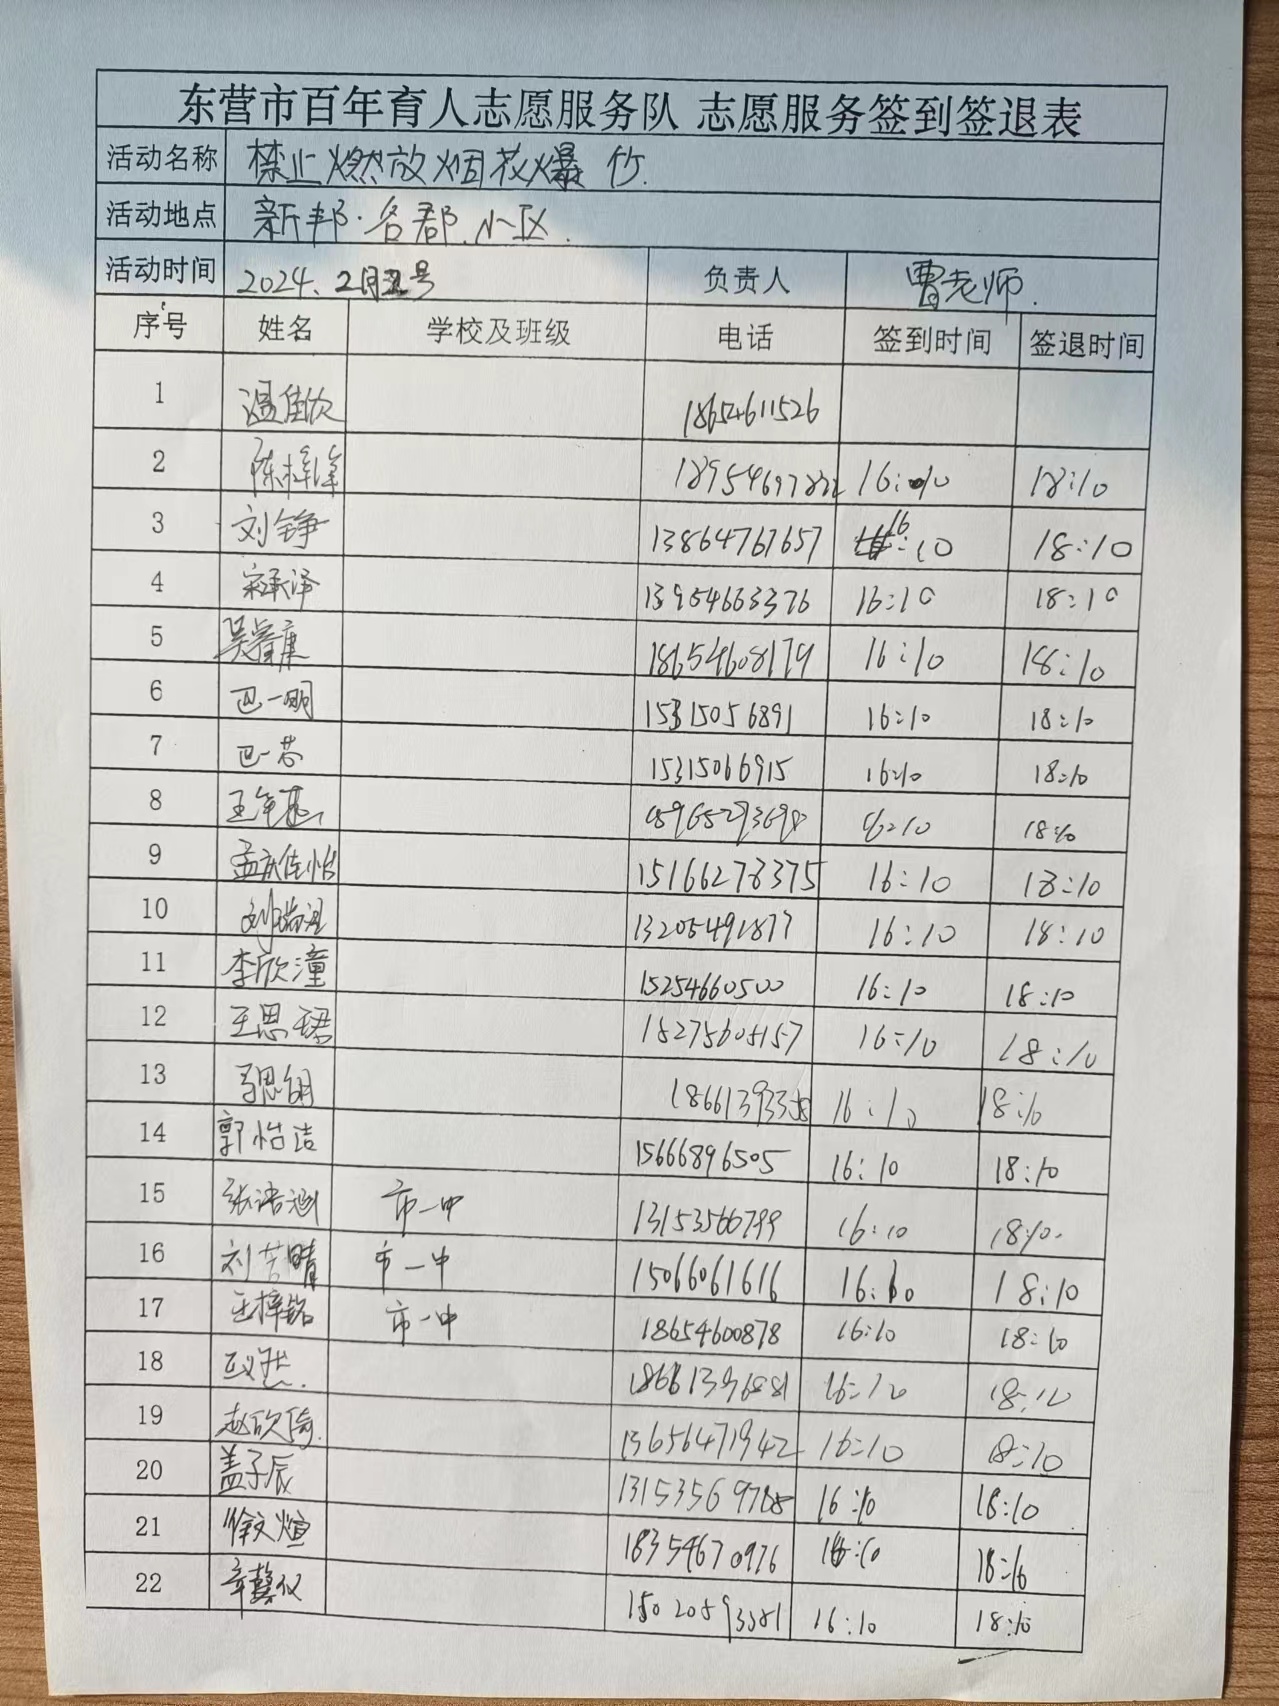 东营市百年育人志愿服务队 志愿服务签到签退表
活动名称 禁止燃放烟花爆竹.
活动地点 新邦·名郡.小区.
活动时间 2024.2月号 负责人 曹老师.
序号 姓名 学校及班级 电话 签到时间 签退时间
1 温佳欣 18654611526
2 陈梓泽 16:10 18:10
3 刘铮 13864767657 16:10 18:10
4 宋承泽 13954663376 16:10 18:10
5 吴睿康 18654608179 16:10 18:10
6 巴一明 15315056891 16:10 18:10
7 巴一芯 15315066915 16:10 18:10
8 18:10
9 孟庆佳怡 15166278375 16:10 18:10
10 13205491877 16:10 18:10
11 李欣潼 15254660500 16:10 18:10
12 王思珺 18275605157 16:10 18:10
13 16:10 18:10
14 郭怡洁 15666896505 16:10 18:10
15 市一中 13153566799 16:10 18:10.
16 市一中 15066061616 16:10 18:10
17 王梓铭 市一中 18654600878 16:10 18:10
18 16:10 18:10
19 赵欣 13656471942 16:10 18:10
20 盖子辰 16:10 18:10
21 徐文煊 18354670976 16:10
22 16:10 18:10